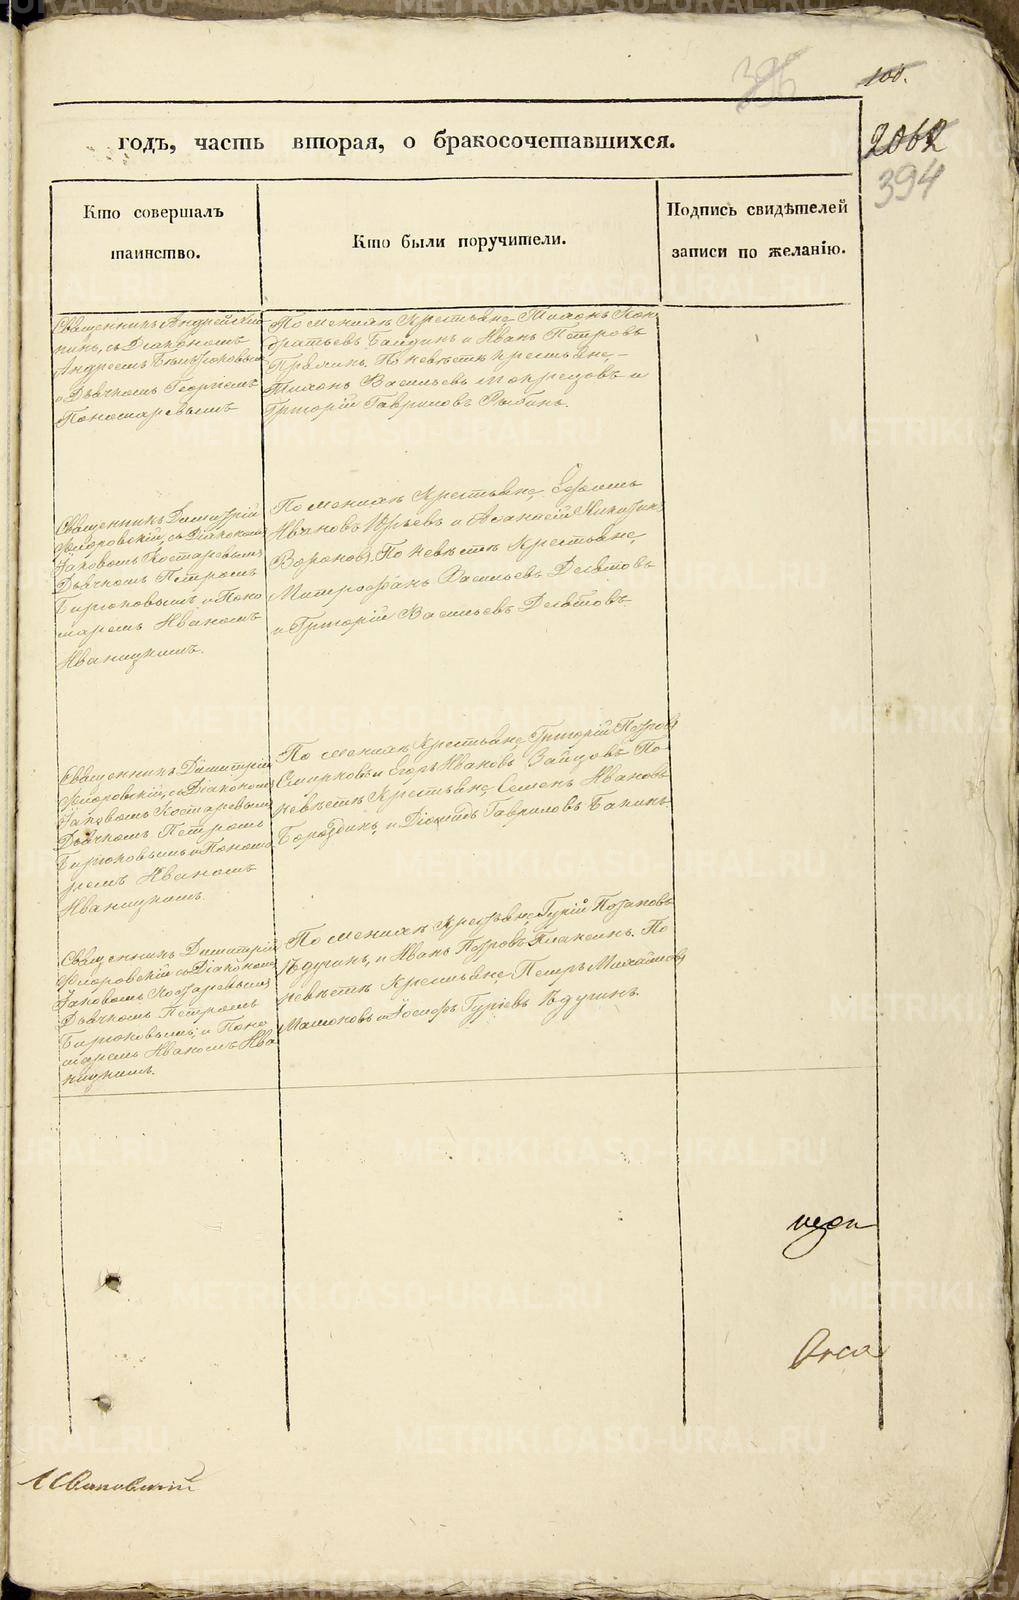 396
100.
2062
394
годъ, часть вторая, о бракосочетавшихся.
Кто совершалъ
таинство.
Кто были поручители.
Подпись свидѣтелей
записи по желанію.
Священникъ Андрей
съ Діакономъ
Андреемъ
и Дьячкомъ Георгіемъ
Пономаревымъ
По женихѣ Крестьяне Тихонъ Кон
дратьевъ и Иванъ Петровъ
По невѣстѣ крестьяне,
Тихонъ Васильевъ Мокрецовъ и
Григорій Гавриловъ Рыбинъ.
Священникъ Димитрій
Флоровскій, съ Діакономъ
Іаковомъ Костаревымъ
Дьячкомъ Петромъ
Бирюковымъ и Поно
маремъ Иваномъ
Иваницкимъ.
По женихѣ Крестьяне, Ефимъ
Ивановъ Юрьевъ и Афанасій Никитинъ
Вороновъ. По невѣстѣ Крестьяне,
Митрофанъ Васильевъ Девятовъ
и Григорій Васильевъ Девятовъ
Священникъ Димитрій
Флоровскій, съ Діакономъ
Іаковомъ Костаревымъ
Дьячкомъ Петромъ
Бирюковымъ и Понома
ремъ Иваномъ
Иваницкимъ.
По женихѣ Крестьяне, Григорій Петровъ
Смирновъ и Егоръ Ивановъ Зайцовъ. По
невѣстѣ Крестьяне, Семенъ Ивановъ
Бороздинъ, и Діомидъ Гавриловъ Бакинъ.
Священникъ Димитрій
Флоровскій съ Діакономъ
Іаковомъ Костаревымъ
Дьячкомъ Петромъ
Бирюковымъ, и Поно
маремъ Иваномъ Ива
ницкимъ.
По женихѣ Крестьяне, Гурій Потаповъ
Ѣдугинъ, и Иванъ Петровъ Плаксинъ. По
невѣстѣ Крестьяне, Петръ Михайловъ
Мамоновъ и Іосифъ Гуріевъ Ѣдугинъ.
METRIKI.GASO-URAL.RU